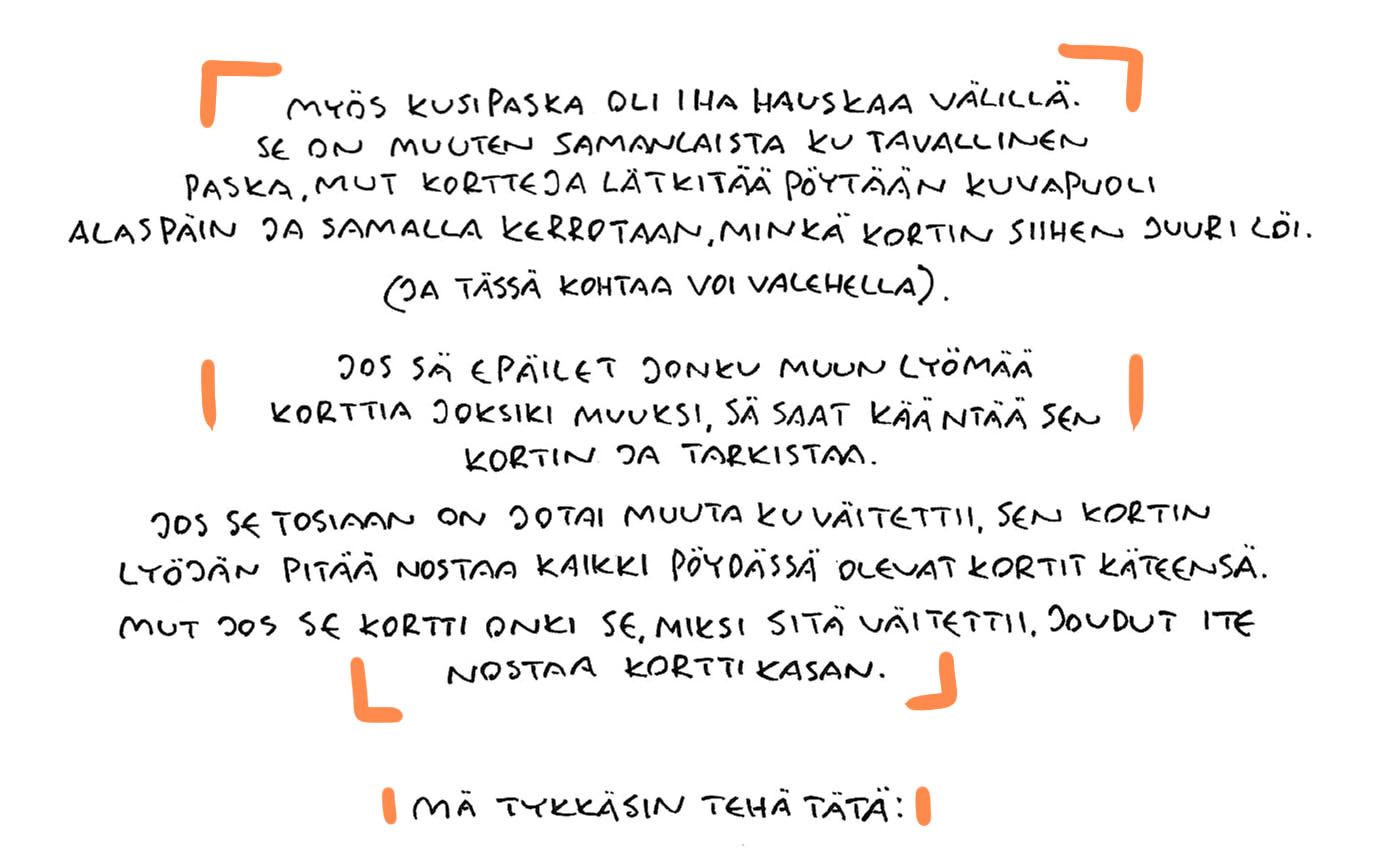 MYÖS KUSIPASKA OLI IHA HAUSKAA VÄLILLÄ.
SE ON MUUTEN SAMANLAISTA KU TAVALLINEN
PASKA, MUT KORTTEJA LÄTKITÄÄ PÖYTÄÄN KUVAPUOLI
ALASPÄIN JA SAMALLA KERROTAAN, MINKÄ KORTIN SIIHEN JUURI LÖI.
(JA TÄSSÄ KOHTAA VOI VALEHELLA).
JOS SÄ EPÄILET JONKU MUUN LYÖMÄÄ
KORTTIA JOKSIKI MUUKSI, SÄ SAAT KÄÄNTÄÄ SEN
KORTIN JA TARKISTAA.
JOS SE TOSIAAN ON JOTAI MUUTA KU VÄITETTII, SEN KORTIN
LYÖJÄN PITÄÄ NOSTAA KAIKKI PÖYDÄSSÄ OLEVAT KORTIT KÄTEENSÄ.
MUT JOS SE KORTTI ONKI SE, MIKSI SITÄ VÄITETTII, JOUDUT ITE
NOSTAA KORTTIKASAN.
MÄ TYKKÄSIN TEHÄ TÄTÄ: